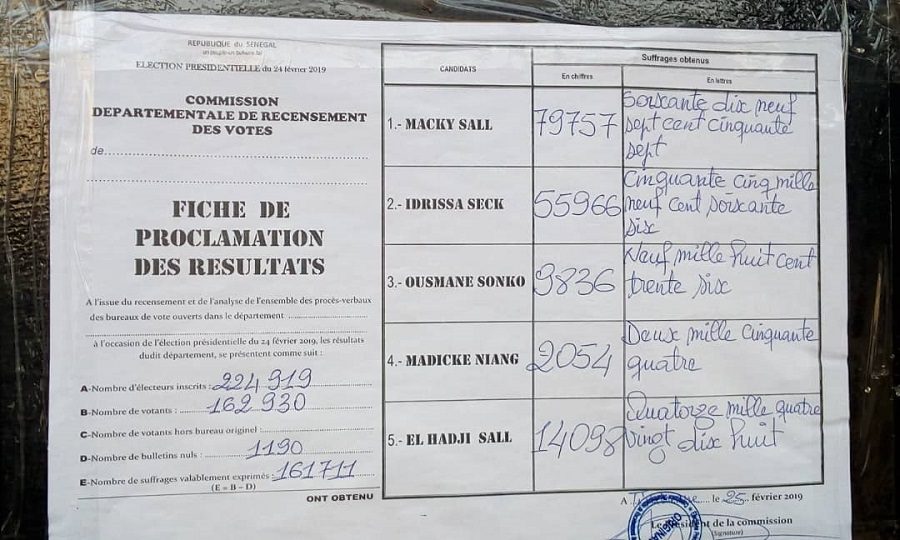 REPUBLIQUE du SENEGAL
un peuple-un but-une foi
ELECTION PRESIDENTIELLE du 24 février 2019
COMMISSION
DEPARTEMENTALE DE RECENSEMENT
DES VOTES
de
FICHE DE
PROCLAMATION
DES RESULTATS
A l'issue du recensement et de l'analyse de l'ensemble des procès-verbaux
des bureaux de vote ouverts dans le département
à l'occasion de l'élection présidentielle du 24 février 2019, les résultats
dudit département, se présentent comme suit :
A-Nombre d'électeurs inscrits : 224 919
B-Nombre de votants : 162 930
C-Nombre de votants hors bureau originel :
D-Nombre de bulletins nuls : 1190
E-Nombre de suffrages valablement exprimés : 161711
(E = B - D)
ONT OBTENU
CANDIDATS
Suffrages obtenus
En chiffres
En lettres
1.- MACKY SALL
79757
Soixante dix neuf
sept cent cinquante
sept
2.- IDRISSA SECK
55966
Cinquante cinq mille
neuf cent soixante
six
3.- OUSMANE SONKO
9836
Neuf mille huit cent
trente six
4.- MADICKE NIANG
2054
Deux mille cinquante
quatre
5.- EL HADJI SALL
14098
Quatorze mille quatre
vingt dix huit
A le 25 février 2019
Le Président de la commission
(Signature)